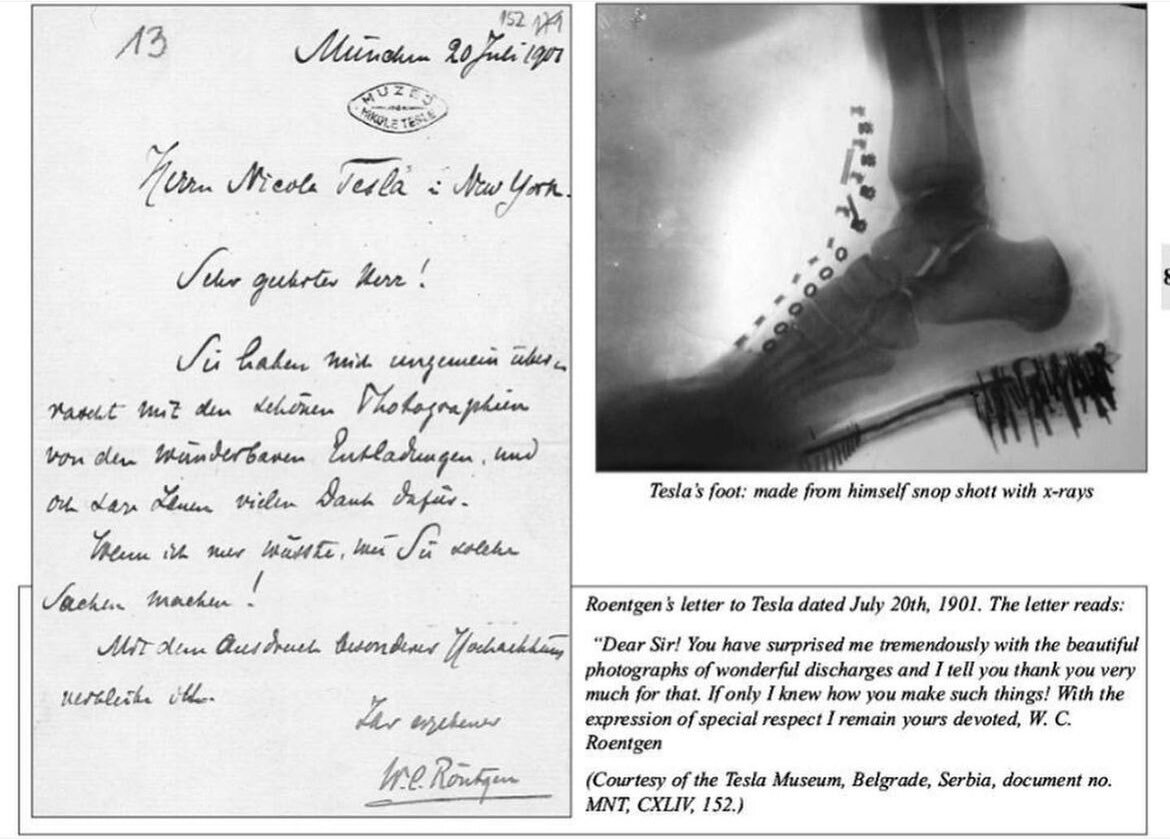 13
152 179
München 20 Juli 1901
MUZEJ
NIKOLE TESLE
Herrn Nicola Tesla i New York.
Sehr geehrter Herr!
Sie haben mich ungemein über-
rascht mit den schönen Photographien
von den wunderbaren Entladungen, und
ich sage Ihnen vielen Dank dafür.
Wenn ich nur wüsste, wie Sie solche
Sachen machen!
Mit dem Ausdruck besonderer Hochachtung
verbleibe ich
Ihr ergebener
W. C. Röntgen
Tesla's foot: made from himself snop shott with x-rays
Roentgen's letter to Tesla dated July 20th, 1901. The letter reads:
“Dear Sir! You have surprised me tremendously with the beautiful
photographs of wonderful discharges and I tell you thank you very
much for that. If only I knew how you make such things! With the
expression of special respect I remain yours devoted, W. C.
Roentgen
(Courtesy of the Tesla Museum, Belgrade, Serbia, document no.
MNT, CXLIV, 152.)